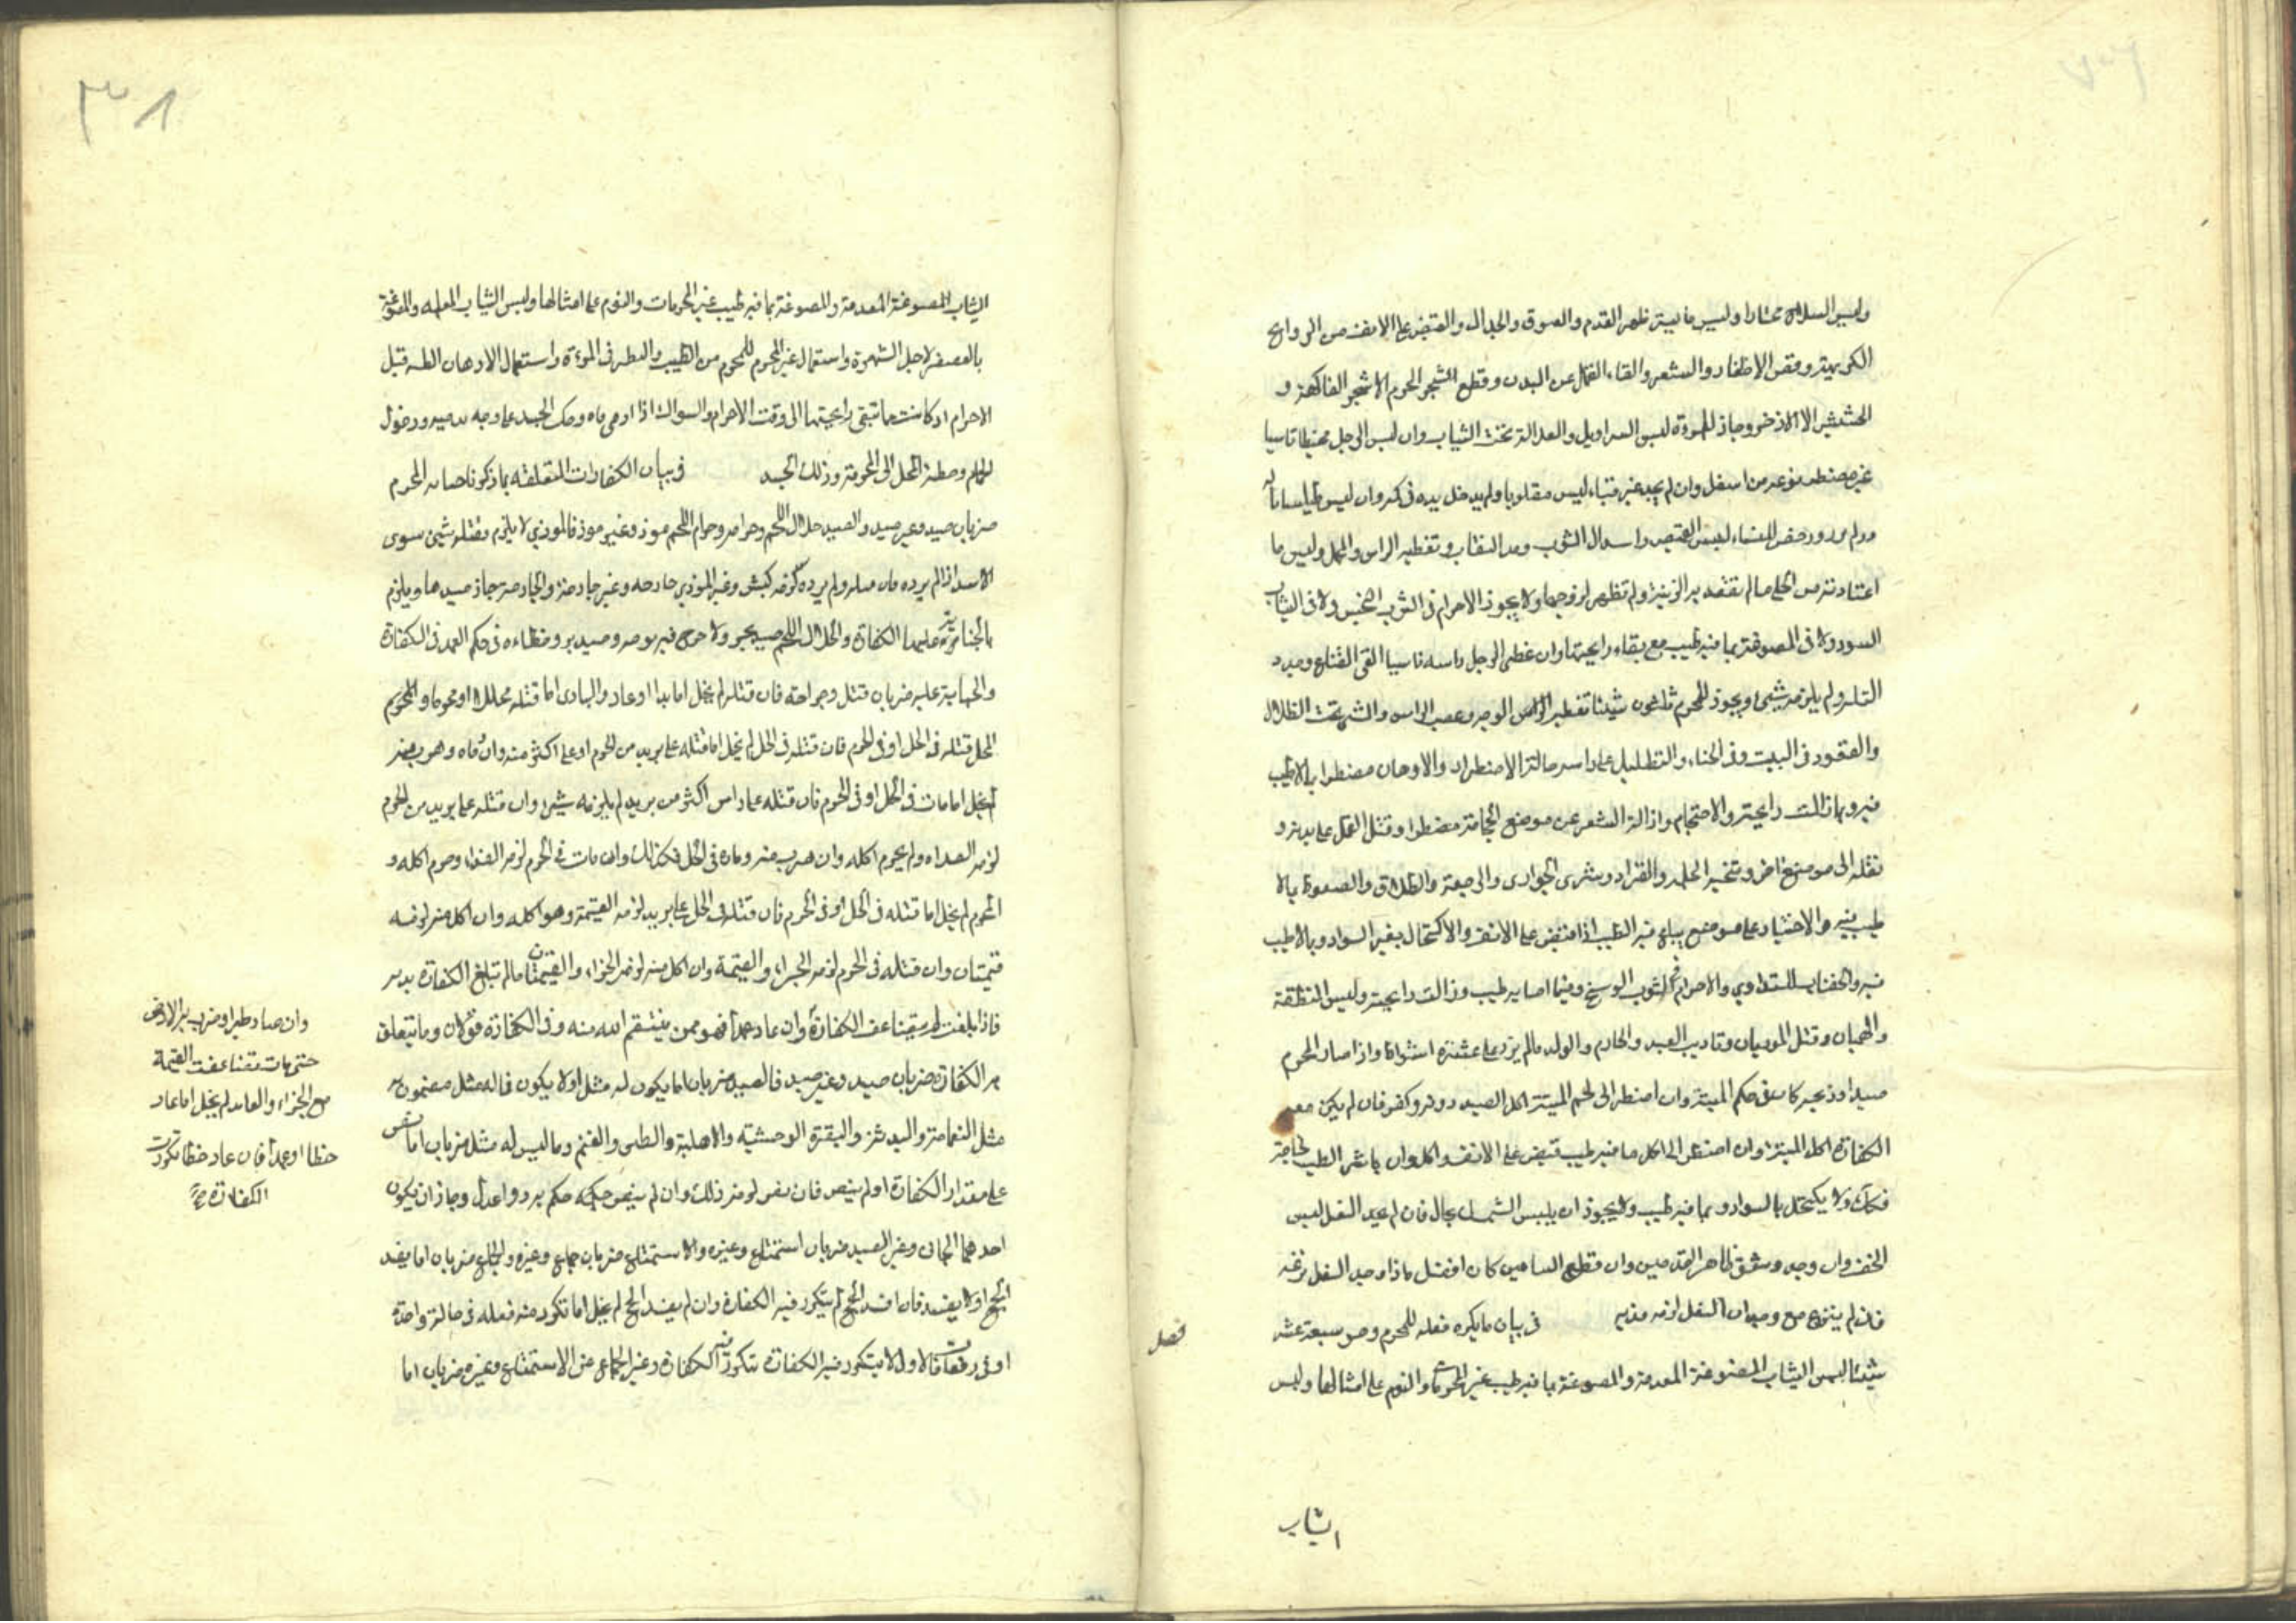 ولبس السلاح مختارا ولبس ما يستر ظهر القدم والفسوق والجدال والقبض على الانف من الروايح
الكريهة وقص الاظفار والشعر والقاء القمل عن البدن وقطع الشجر الحرم الا شجر الفاكهة و
الحشيش الا الاذخر وجاز للمرءة لبس السراويل والغلالة تحت الثياب وان لبس الرجل مخيطا ناسيا
غير مضطر نزعه من اسفل وان لم يجد غير قباء لبس مقلوبا ولم يدخل يده في كمه وان لبس طيلسانا له
للنساء لبس القميص واسدال الثوب النقاب وتغطية الراس والمحمل ولبس ما
اعتادته من الحلي ما لم تقصد به الزينة ولم تظهر لزوجها ولا يجوز الاحرام في الثوب النجس ولا في الثياب
السود ولا في المصبوغة بما فيه طيب مع بقاء رايحتها وان غطى الرجل راسه ناسيا القى القناع وجدد
التلبية ولم يلزمه شيئ ويجوز للمحرم ثلثون شيئا تغطية الوجه وعصب الراس والمشي تحت الظلال
والقعود في البيت وفي الخباء والتظليل على راسه حالة الاضطرار والادهان مضطرا بما لا طيب
فيه وبما زالت رايحته والاحتجام وازالة الشعر عن موضع الحجامة مضطرا وقتل القمل على بدنه و
نقله الى موضع اخر وتنحية الحلم والقراد وشرى الجوارى والرجعة والطلاق والصعوط بما لا
طيب فيه والاجتياز على موضع يباع فيه الطيب اذا قبض على الانف والاكتحال بغير السواد وبما لا طيب
فيه والخضاب للتداوي والاحرام في الثوب الوسخ وفيما اصابه طيب وزالت رايحته ولبس المنطقة
والهميان وقتل الموذيات وتاديب العبد والخادم والولد ما لم يزد على عشرة اسواط واذا صاد المحرم
صيدا وذبحه كان في حكم الميتة وان اضطر الى لحم الميتة اكل الصيد دونه وكفر فان لم يكن معه
الكفارة اكل الميتة وان اضطر الى اكل ما فيه طيب قبض على الانف واكل وان باشر الطيب لحاجة
فكذلك ولا يكتحل بالسواد وبما فيه طيب ولا يجوز ان يلبس بحال فان لم يجد النعل لبس
الخف وان وجد وشق ظاهر القدمين وان قطع الساقين كان افضل فاذا وجد النعل نزعه
فان لم ينزع مع وجدان النعل لزمه فديه في بيان ما يكره فعله للمحرم وهو سبعة عشر
فصل
شيئا لبس الثياب المصبوغة المقدمة والمصبوغة بما فيه طيب غير المحرمات والنوم على امثالها ولبس
الثياب
٣٨
الثياب المصبوغة المقدمة والمصبوغة بما فيه طيب غير المحرمات والنوم على امثالها ولبس الثياب المعلمه والمصبوغة
بالعصفر لاجل الشهرة واستعمال غير المحرم للمحرم من الطيب والنظر في المرءة واستعمال الادهان الطيبة قبل
الاحرام اذ كانت مما تبقى رايحتها الى وقت الاحرام والسواك اذا ادمى فاه وحك الجسد على وجه يدميه ودخول
الحمام وخطبة المحل الى المحرمة وذلك الجسد في بيان الكفارات المتعلقة بما ذكرنا جناية المحرم
ضربان صيد وغير صيد والصيد حلال اللحم وحرام وحرام اللحم موذ وغير موذ فالموذي لا يلزم بقتله شيئ سوى
الاسد اذا لم يرده فان قتله ولم يرده لزمه كبش وغير الموذي جارحه وغير جارحة والجارحة جاز صيدها ويلزم
بالجناية عليها الكفارة والحلال اللحم صيد بحر ولا حرج فيه بوجه وصيد بر وخطاءه في حكم العمد في الكفارة
والجناية عليه ضربان قتل وجراحة فان قتله لم يخل اما بدا او عاد والبادى اما قتله محلل او محرما والمحرم
المحل قتله في الحل او في الحرم فان قتله في الحل لم يخل اما قتله على بريد من الحرم او على اكثر منه وان رماه وهرب منه
لم يخل اما مات في الحل او في الحرم فان قتله على راس اكثر من بريد لم يلزمه شيئ وان قتله على بريد من الحرم
لزمه الفداء ولم يحرم اكله وان هرب منه ومات في الحل فكذلك وان مات في الحرم لزمه الفداء وحرم اكله و
المحرم لم يخل اما قتله في الحل او في الحرم فان قتله في الحل على بريد لزمه القيمة وهو اكله وان اكل منه لزمه
قيمتان وان قتله في الحرم لزمه الجزاء والقيمة وان اكل منه لزمه الجزاء والقيمتان ما لم تبلغ الكفارة بدنه
فاذا بلغت لم يتضاعف الكفارة وان عاد عمدا فهو ممن ينتقم الله منه وفي الكفارة قولان وما يتعلق
به الكفارة ضربان صيد وغير صيد فالصيد ضربان اما يكون له مثل او لا يكون فما له مثل مضمون به
مثل النعامة والبدنة والبقرة الوحشية والاهلية والظبى والغنم وما ليس له مثل ضربان اما نص
على مقدار الكفارة او لم ينص فان نص لزمه ذلك وان لم ينص حكمه حكم به ذوا عدل وجاز ان يكون
احدهما الجاني وغير الصيد ضربان استمتاع وغيره والاستمتاع ضربان جماع وغيره والجماع ضربان اما يفسد
الحج او لا يفسد فان افسد الحج لم يتكرر فيه الكفارة وان لم يفسد الحج لم يخل اما تكرر منه فعله في حالة واحدة
او في دفعات فالاول لا يتكرر فيه الكفارة تتكرر فيه الكفارة وغير الجماع من الاستمتاع وغيره ضربان اما
وان صاد طيرا وضرب به الارض
حتى مات تضاعفت القيمة
مع الجزاء والعائد لم يخل اما عاد
خطا او عمدا فان عاد خطا تكررت
الكفارة صح